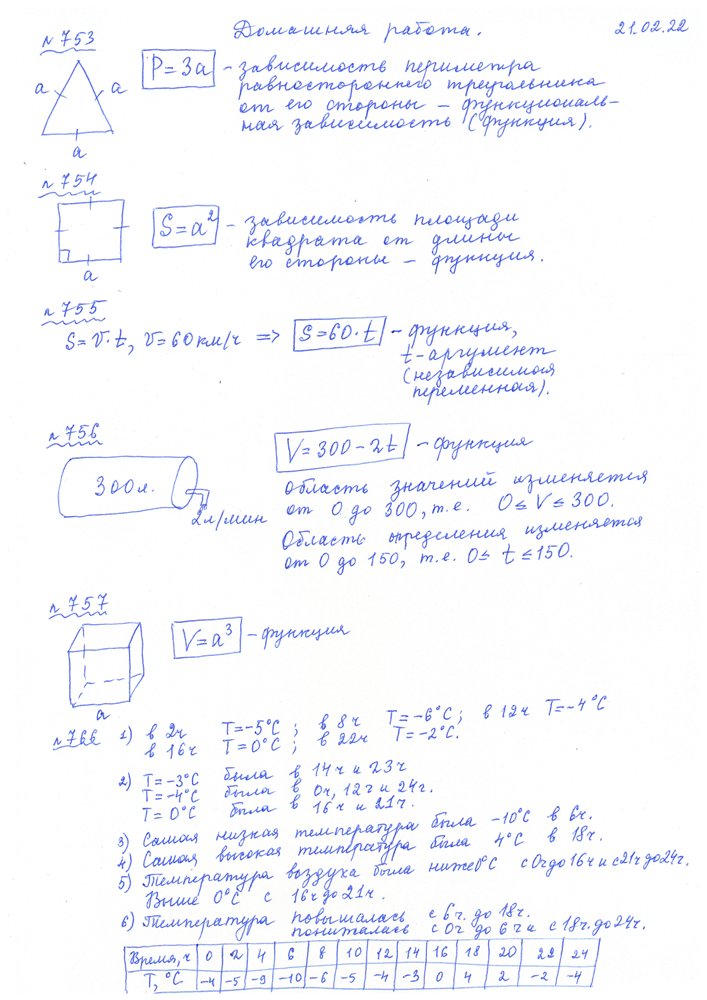 Домашняя работа. 21.02.22
№753
a a a
P=3a - зависимость периметра
равностороннего треугольника
от его стороны – функциональ-
ная зависимость (функция).
№754
a
S=a² - зависимость площади
квадрата от длины
его стороны – функция.
№755
S=v·t, v=60км/ч => S=60·t - функция,
t-аргумент
(независимая
переменная).
№756
300л.
2л/мин
V=300-2t - функция
Область значений изменяется
от 0 до 300, т.е. 0≤V≤300.
Область определения изменяется
от 0 до 150, т.е. 0≤t≤150.
№757
a
V=a³ - функция
№766 1) в 2ч T=-5°C; в 8ч T=-6°C; в 12ч T=-4°C
в 16ч T=0°C; в 22ч T=-2°C.
2) T=-3°C была в 14ч и 23ч
T=-4°C была в 0ч, 12ч и 24ч.
T=0°C была в 16ч и 21ч.
3) Самая низкая температура была -10°C в 6ч.
4) Самая высокая температура была 4°C в 18ч.
5) Температура воздуха была ниже 0°C с 0ч до 16ч и с 21ч до 24ч.
Выше 0°C с 16ч до 21ч.
6) Температура повышалась с 6ч. до 18ч.
понижалась с 0ч до 6ч и с 18ч. до 24ч.
Время, ч 0 2 4 6 8 10 12 14 16 18 20 22 24
T, °C -4 -5 -9 -10 -6 -5 -4 -3 0 4 2 -2 -4